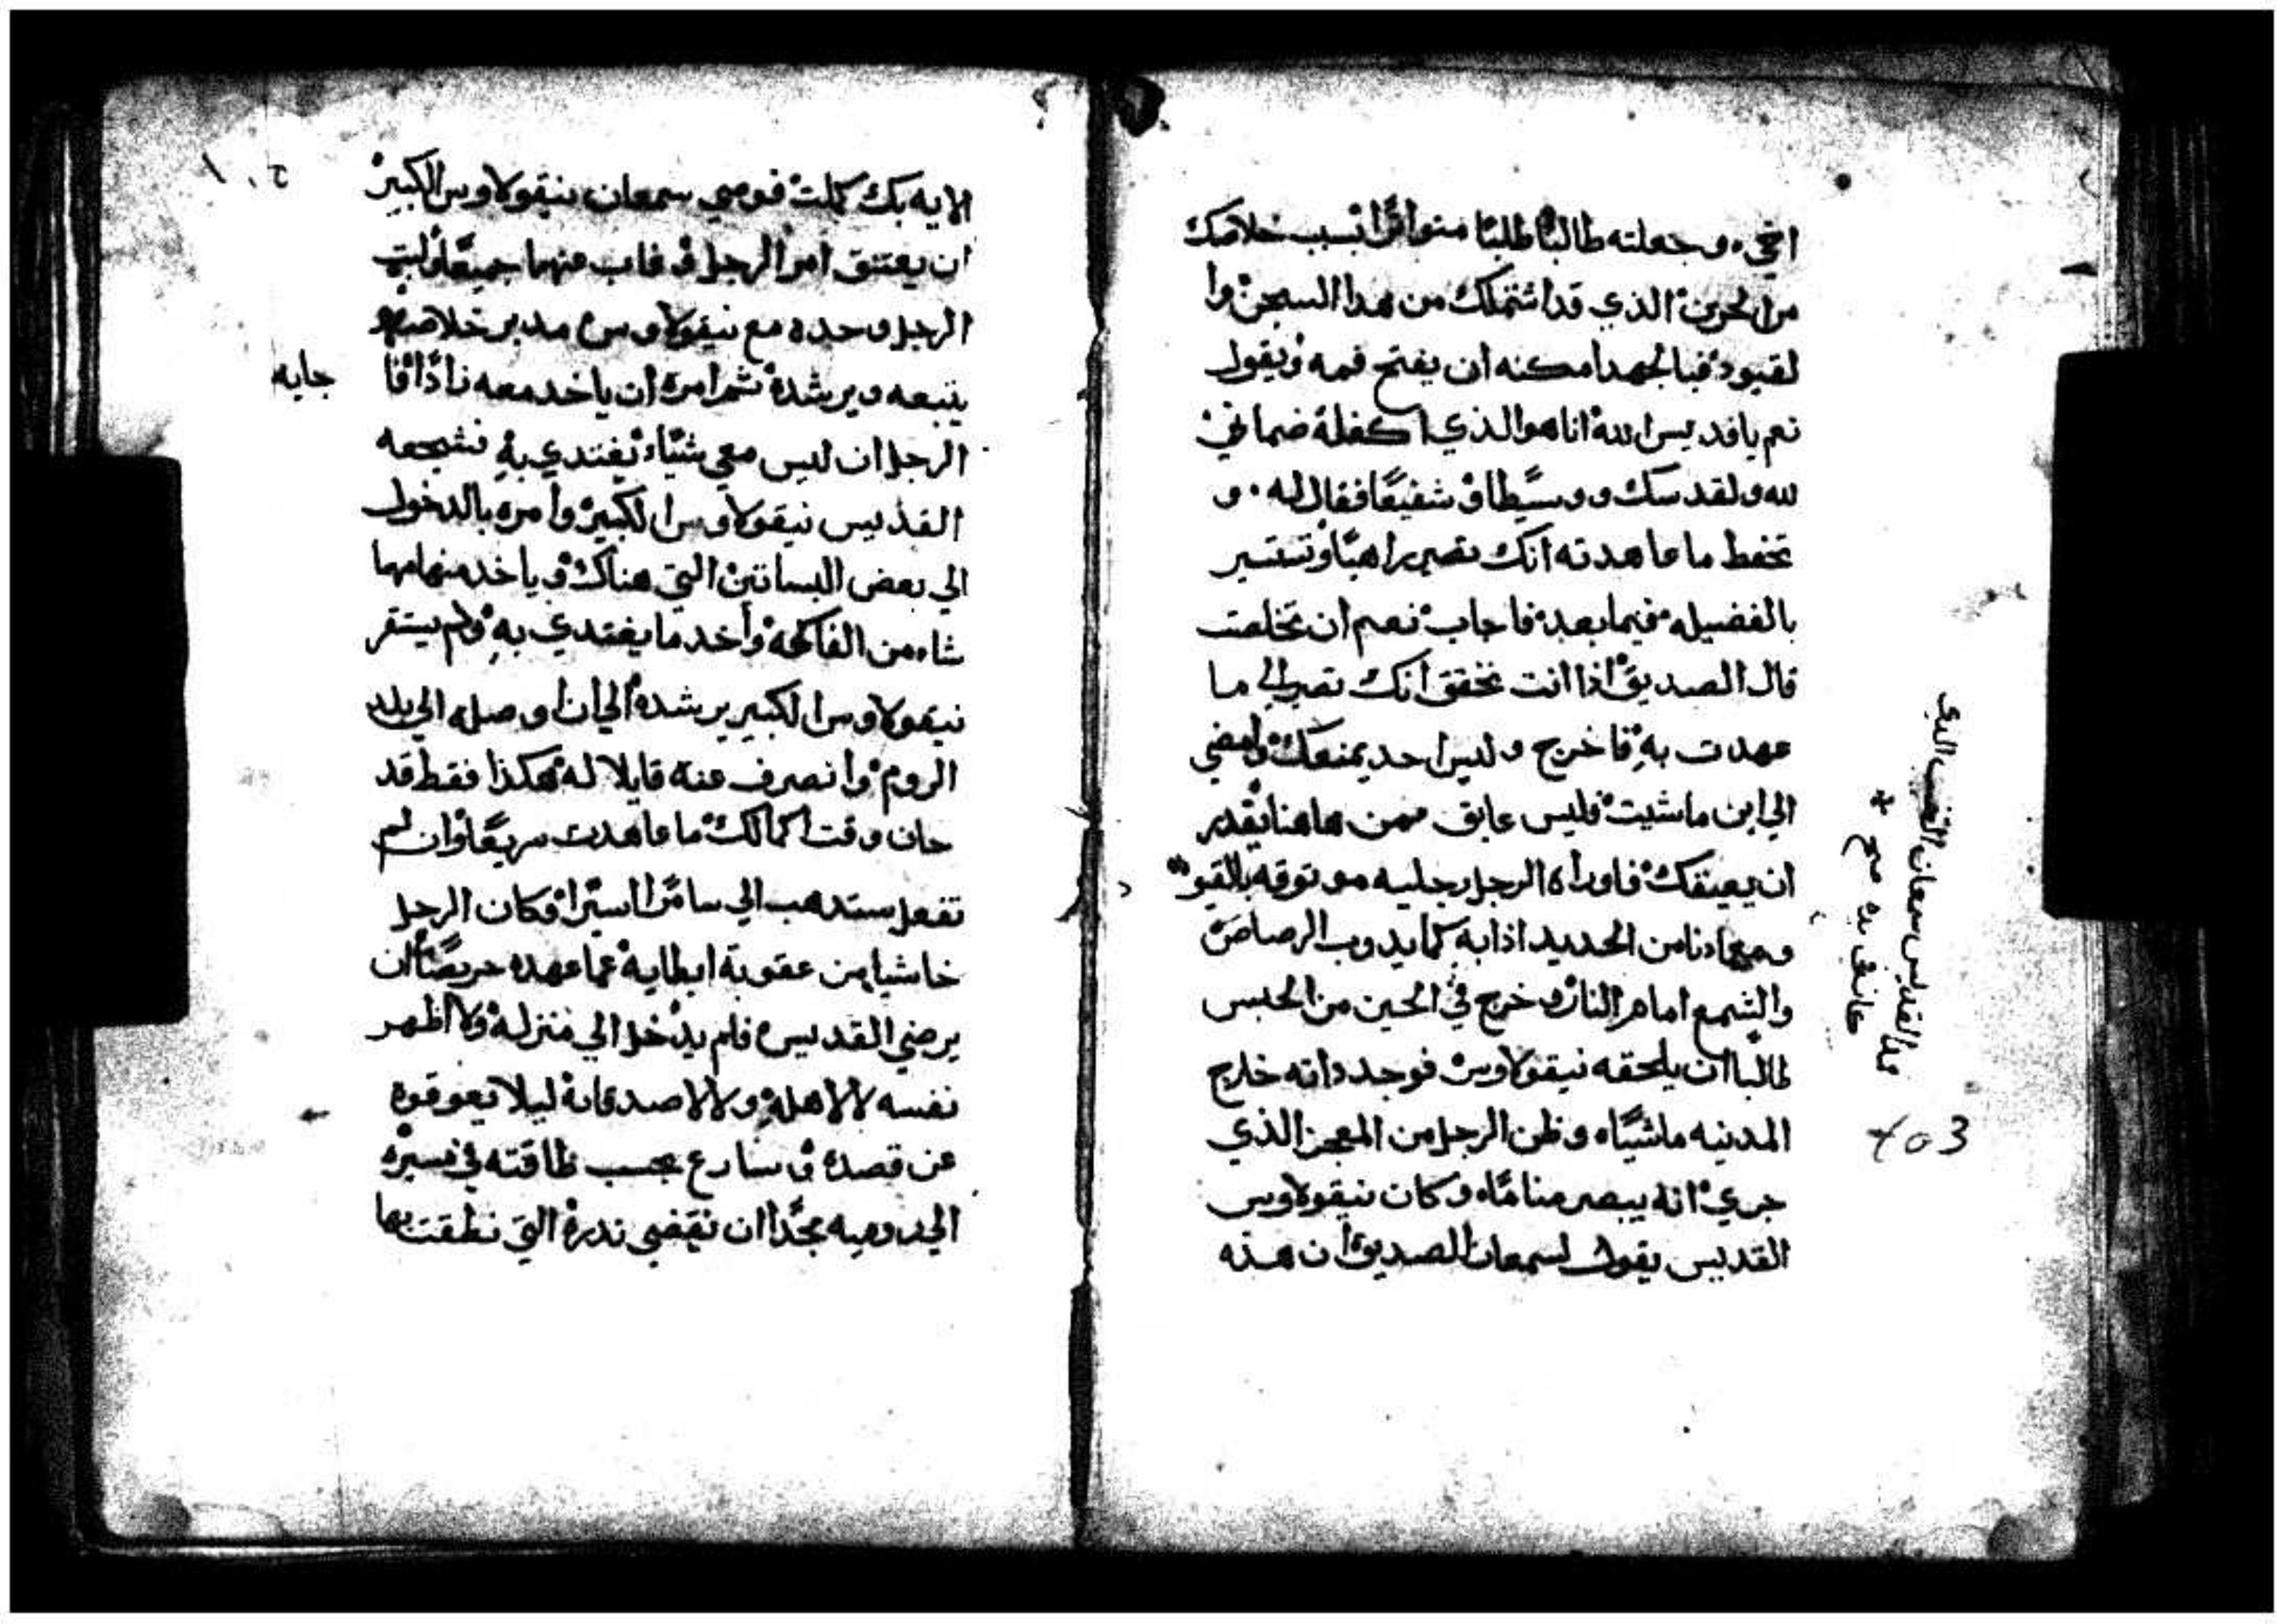 اخي، وجعلته طالبًا طلبًا متواترًا بسبب خلاصك
من الحزن الذي قد اشتملك من هدا السجن وا
لقيود فبالجهد امكنه ان يفتح فمه ويقول
نعم يا قديس الله انا هو الذي اكفله ضماني
لله ولقدسك ووسيطا وشفيعًا فقال له. و
تحفط ما عاهدته انك تصير راهبًا وتستسير
بالفضيله فيما بعده فاجاب نعم ان تخلصت
قال الصديق اذا انت تحقق انك تصير الي ما
عهدت به فاخرج وليس احد يمنعك وامضي
الي اين ما شيت فليس عايق ممن هاهنا يقدر
ان يعيقك فاورأه الرجل رجليه موتوقه بالقيو
معادنا من الحديد اذا به كما يدوب الرصاص
والشمع امام النار، خرج في الحين من الحبس
طالبا ان يلحقه نيقولاوس فوجد داته خارج
المدنيه ماشيًا، وظن الرجل من المعجز الذي
جري انه يبصر منامًا، وكان نيقولاوس
القديس يقول لسمعان الصديق ان هذه
هذا القديس سمعان الشيخ الذي
عانق يده صح
403
الايه بك كملت فومي سمعان بنيقولاوس الكبير
ان يعتنق امر الرجل وغاب عنهما جميعًا ولبت
الرجل وحده مع نيقولاوس مدبر خلاصه
يتبعه ويرشده ثم امره ان ياخد معه زادًا قا
جابه
الرجل ان ليس معي شيًا، يفتدي به فشجعه
القديس نيقولاوس الكبير وامره بالدخول
الي بعض البساتين التي هناك وياخد منها مهما
شاء من الفاكهة وأخد ما يغتدي به ولم يستقر
نيقولاوس الكبير يرشده الي ان اوصله الي بلد
الروم وانصرف عنه قايلا له هكذا فقط قد
حان وقت اكمالك ما عاهدت سريعًا وان لم
تفعل ستدهب الي سامرا اسيرًا وكان الرجل
خاشيا من عقوبة ابطايه عما عهده حريصًا ان
يرضي القديس فلم يدخل الي منزله ولا اظهر
نفسه لا لاهله ولا لاصدقايه ليلا يعوقوه
عن قصده وسارع بحسب طاقته في مسيره
الي روميه مجدًا ان تقضي ندره التي نطقت بها